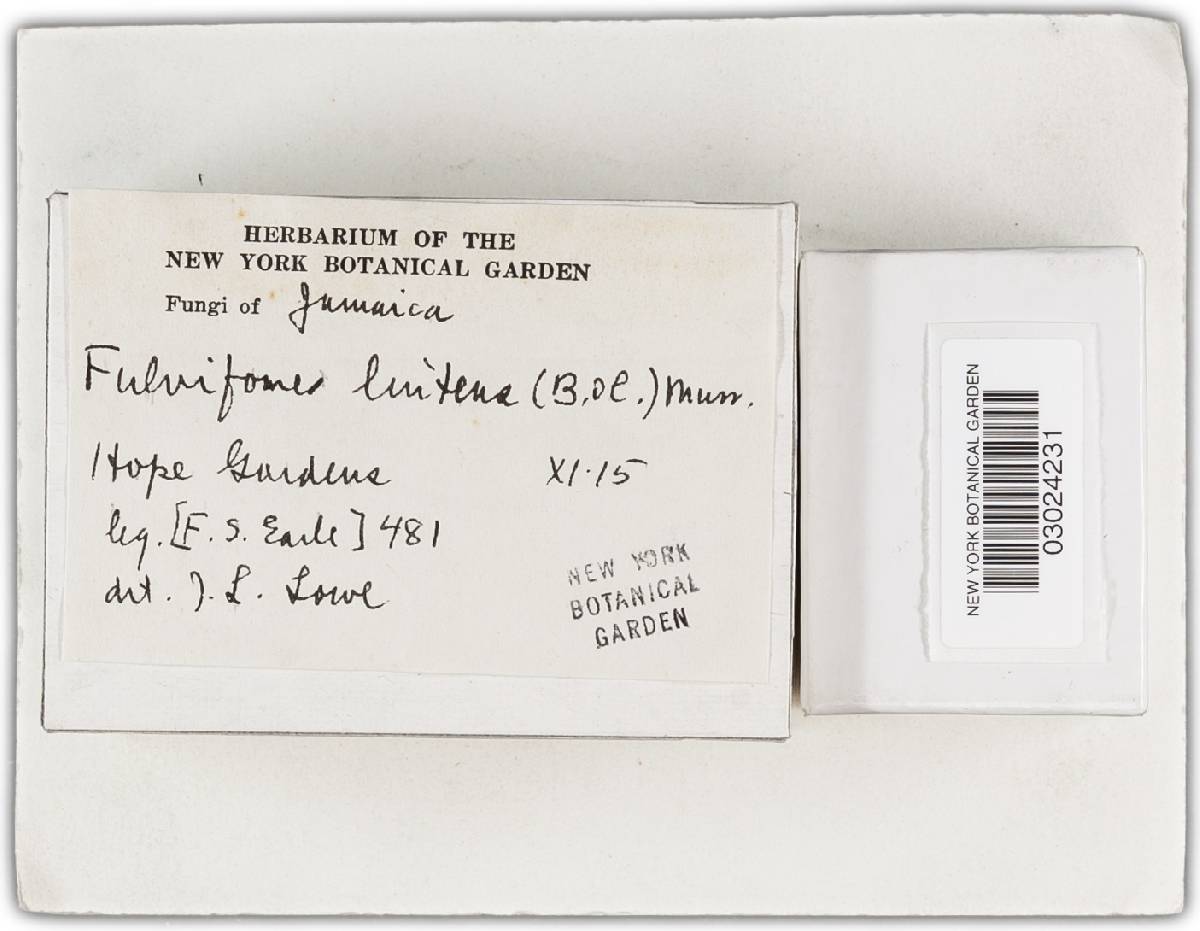 HERBARIUM OF THE
NEW YORK BOTANICAL GARDEN
Fungi of Jamaica
Fulvifomes linteus (B.&C.) Murr.
Hope Gardens XI-15
leg. [F. S. Earle] 481
det. J. L. Lowe
NEW YORK
BOTANICAL
GARDEN
NEW YORK BOTANICAL GARDEN
03024231